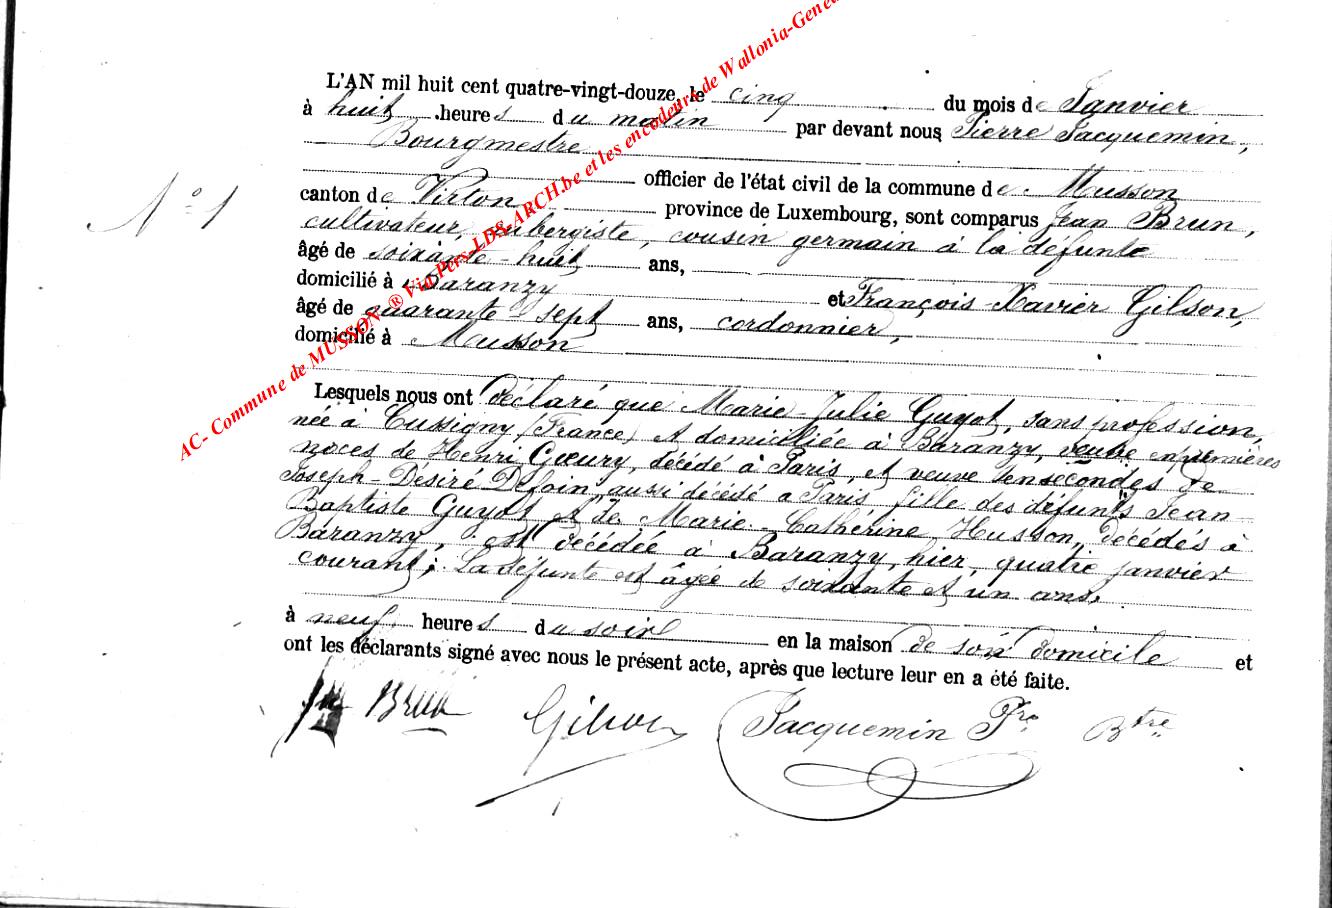 AC- Commune de MUSSON ® Via Pers-LDS-ARCH.be et les encodeurs de Wallonia-Gene
L'AN mil huit cent quatre-vingt-douze, le cinq du mois de Janvier
à huit heures du matin par devant nous Pierre Jacquemin,
Bourgmestre
officier de l'état civil de la commune de Musson
N° 1
canton de Virton province de Luxembourg, sont comparus Jean Brun,
cultivateur, aubergiste, cousin germain à la défunte
âgé de soixante-huit ans,
domicilié à Baranzy et François-Xavier Gilson,
âgé de quarante-sept ans, cordonnier,
domicilié à Musson
Lesquels nous ont déclaré que Marie-Julie Guyot, sans profession,
née à Cussigny, (France) et domiciliée à Baranzy, veuve en premières
noces de Henri Gœury, décédé à Paris, et veuve en secondes de
Joseph-Désiré Defoin, aussi décédé à Paris, fille des défunts Jean-
Baptiste Guyot et de Marie-Catherine Husson, décédés à
Baranzy, est décédée à Baranzy, hier, quatre janvier
courant; La défunte est âgée de soixante et un ans.
à neuf heures du soir en la maison de son domicile et
ont les déclarants signé avec nous le présent acte, après que lecture leur en a été faite.
Brun Gilson Jacquemin Pre Btre